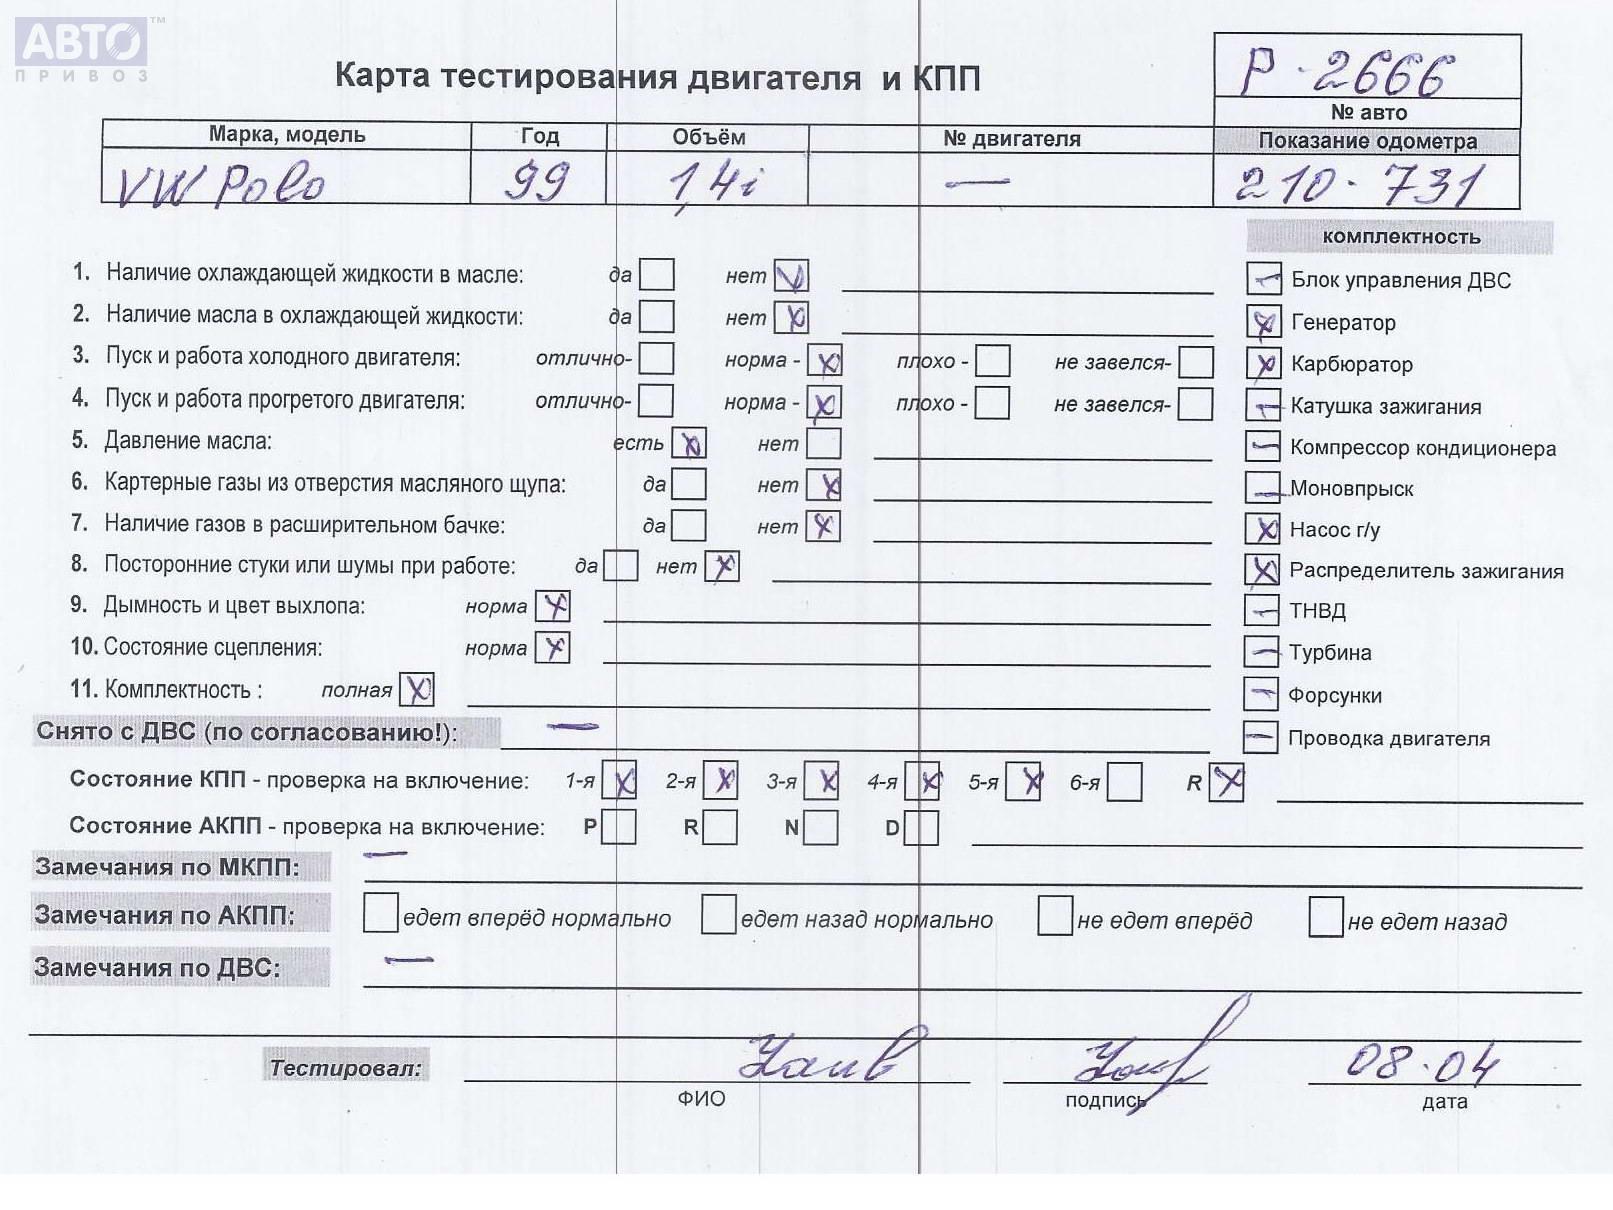 АВТО™
ПРИВОЗ
Карта тестирования двигателя и КПП
Р-2666
№ авто
Марка, модель Год Объём № двигателя Показание одометра
VW Polo 99 1,4i — 210-731
комплектность
1. Наличие охлаждающей жидкости в масле: да нет
Блок управления ДВС
2. Наличие масла в охлаждающей жидкости: да нет
Генератор
3. Пуск и работа холодного двигателя: отлично- норма - плохо - не завелся-
Карбюратор
4. Пуск и работа прогретого двигателя: отлично- норма - плохо - не завелся-
Катушка зажигания
5. Давление масла: есть нет
Компрессор кондиционера
6. Картерные газы из отверстия масляного щупа: да нет
Моновпрыск
7. Наличие газов в расширительном бачке: да нет
Насос г/у
8. Посторонние стуки или шумы при работе: да нет
Распределитель зажигания
9. Дымность и цвет выхлопа: норма
ТНВД
10. Состояние сцепления: норма
Турбина
11. Комплектность : полная
Форсунки
Снято с ДВС (по согласованию!): —
Проводка двигателя
Состояние КПП - проверка на включение: 1-я 2-я 3-я 4-я 5-я 6-я R
Состояние АКПП - проверка на включение: P R N D
Замечания по МКПП: —
Замечания по АКПП: едет вперёд нормально едет назад нормально не едет вперёд не едет назад
Замечания по ДВС: —
Тестировал: 08.04
ФИО подпись дата